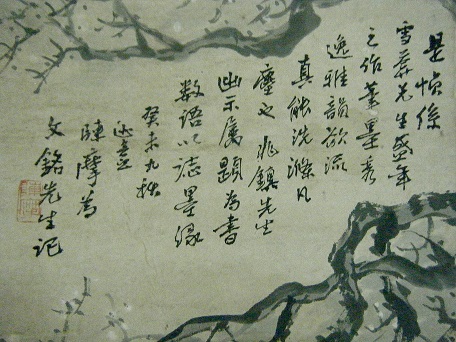 是幀係
雪葊先生盛年
之作筆墨秀
逸雅韻欲流
真能洗滌凡
塵也兆鎮先生
出示屬題為書
數語以誌墨緣
癸未九秋
迦盦
陳摩為
文銘先生記